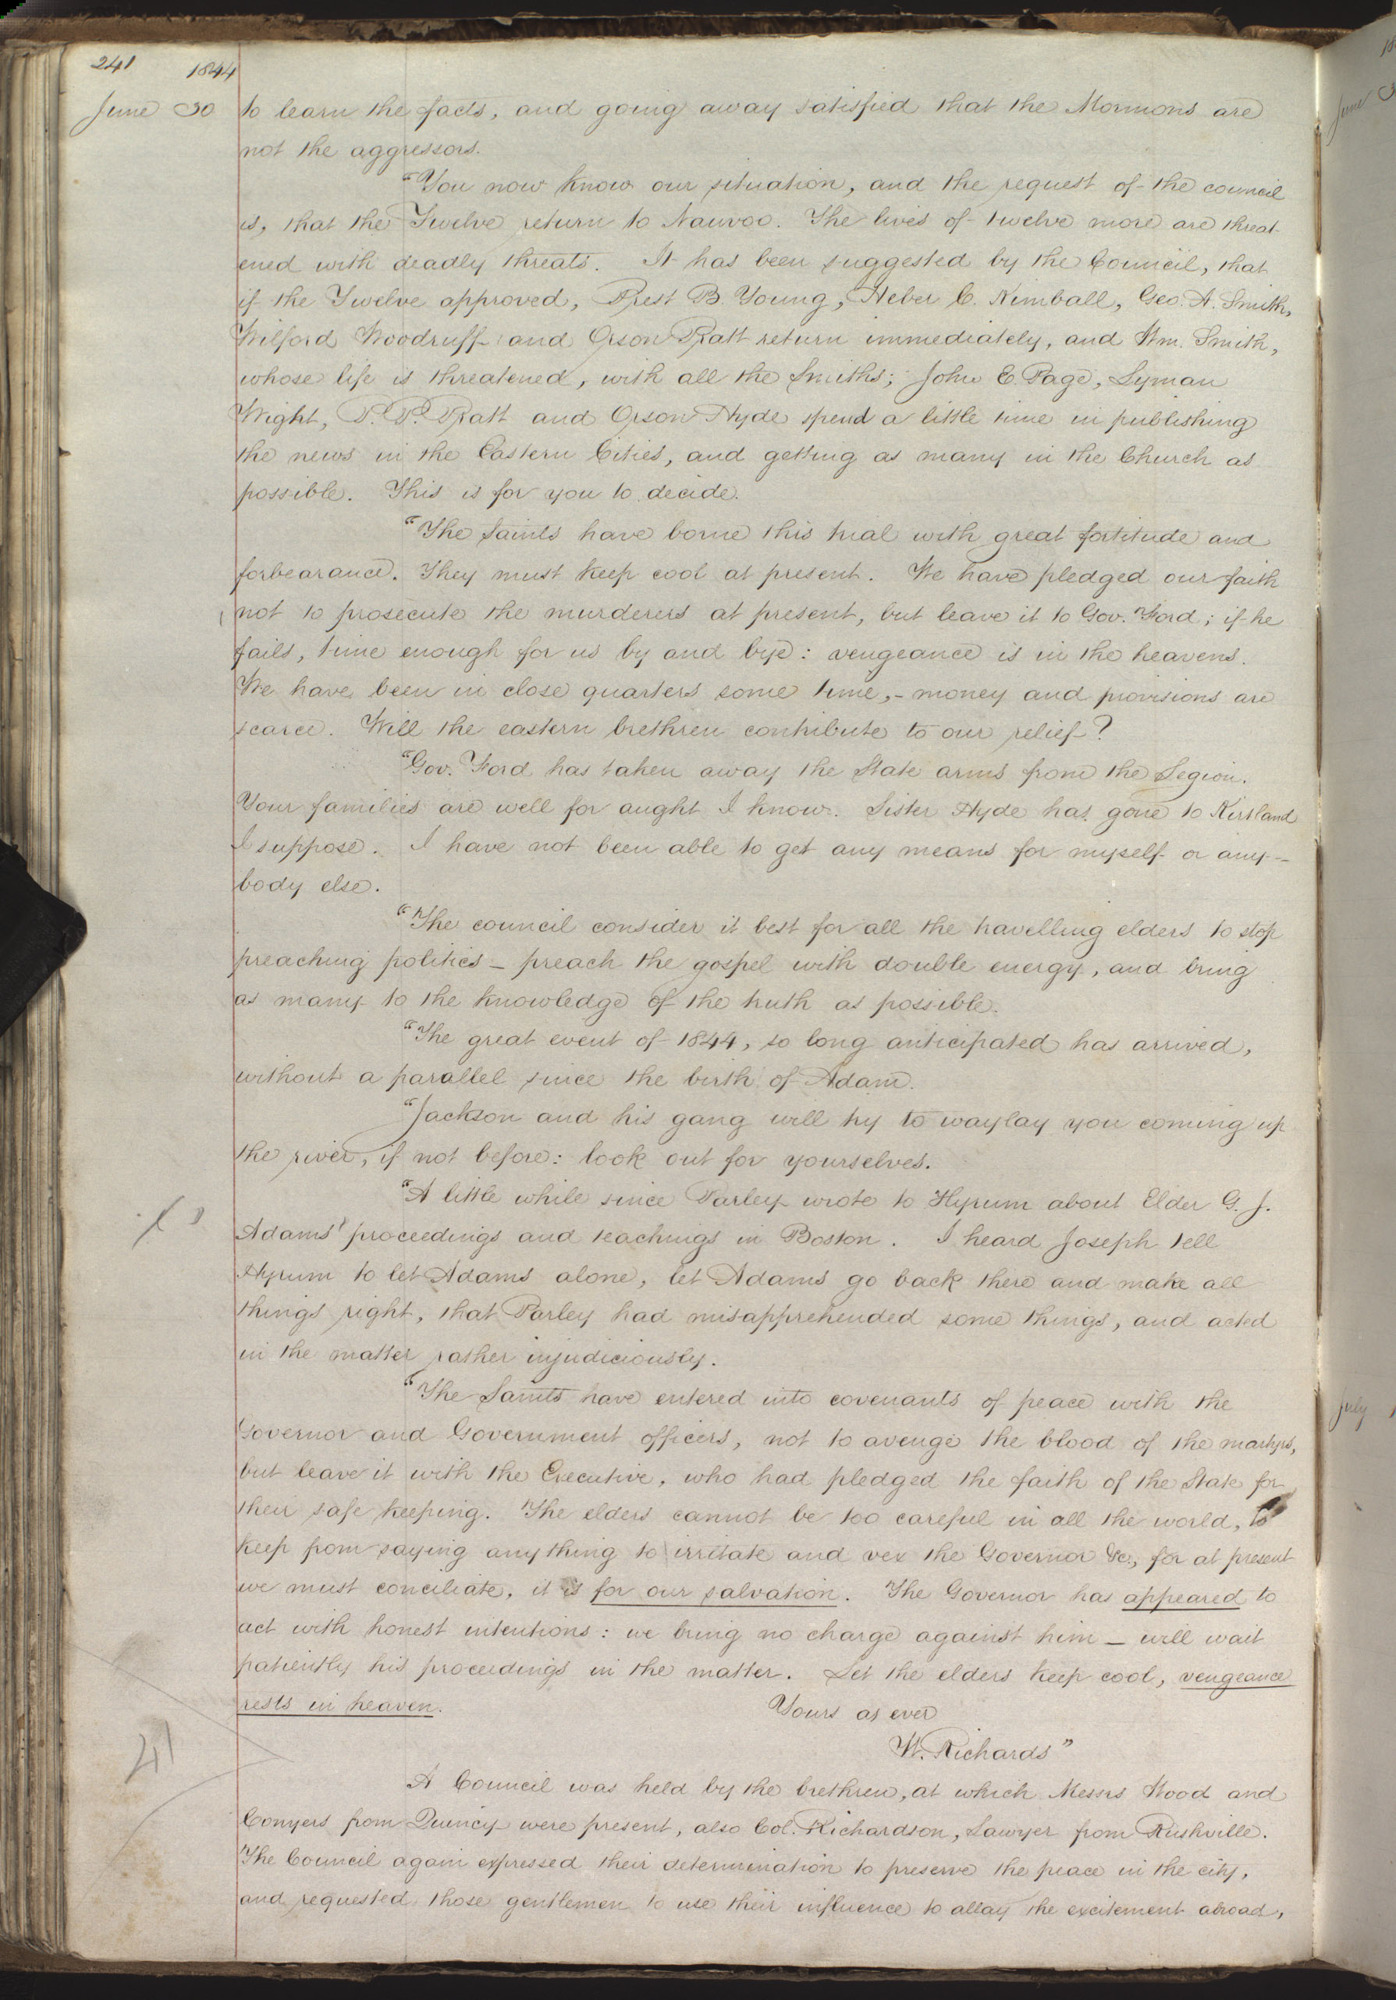 241 1844
June 30 to learn the facts, and going away satisfied that the Mormons are
not the aggressors.
"You now know our situation, and the request of the council
is, that the Twelve return to Nauvoo. The lives of twelve more are threat-
ened with deadly threats. It has been suggested by the Council, that
if the Twelve approved, Prest B. Young, Heber C. Kimball, Geo. A. Smith,
Wilford Woodruff and Orson Pratt return immediately, and Wm. Smith,
whose life is threatened, with all the Smiths; John E. Page, Lyman
Wight, P. P. Pratt and Orson Hyde spend a little time in publishing
the news in the Eastern Cities, and getting as many in the Church as
possible. This is for you to decide.
"The saints have borne this trial with great fortitude and
forbearance. They must keep cool at present. We have pledged our faith
not to prosecute the murderers at present, but leave it to Gov. Ford; if he
fails, time enough for us by and bye: vengeance is in the heavens.
We have been in close quarters some time,- money and provisions are
scarce. Will the eastern brethren contribute to our relief?
"Gov. Ford has taken away the State arms from the Legion.
Your families are well for aught I know. Sister Hyde has gone to Kirtland
I suppose. I have not been able to get any means for myself or any-
body else.
"The council consider it best for all the travelling elders to stop
preaching politics — preach the gospel with double energy, and bring
as many to the knowledge of the truth as possible.
"The great event of 1844, so long anticipated has arrived,
without a parallel since the birth of Adam.
"Jackson and his gang will try to waylay you coming up
the river, if not before: look out for yourselves.
"A little while since Parley wrote to Hyrum about Elder G. J.
Adams' proceedings and teachings in Boston. I heard Joseph tell
Hyrum to let Adams alone, let Adams go back there and make all
things right, that Parley had misapprehended some things, and acted
in the matter rather injudiciously.
"The Saints have entered into covenants of peace with the
Governor and Government officers, not to avenge the blood of the martyrs,
but leave it with the Executive, who had pledged the faith of the State for
their safe keeping. The elders cannot be too careful in all the world, to
keep from saying anything to irritate and vex the Governor &c, for at present
we must conciliate, it is for our salvation. The Governor has appeared to
act with honest intentions: we bring no charge against him — will wait
patiently his proceedings in the matter. Let the elders keep cool, vengeance
rests in heaven. Yours as ever
W. Richards"
A Council was held by the brethren, at which Messrs Wood and
Conyers from Quincy were present, also Col. Richardson, Lawyer from Rushville.
The Council again expressed their determination to preserve the peace in the city,
and requested those gentlemen to use their influence to allay the excitement abroad,
June
July